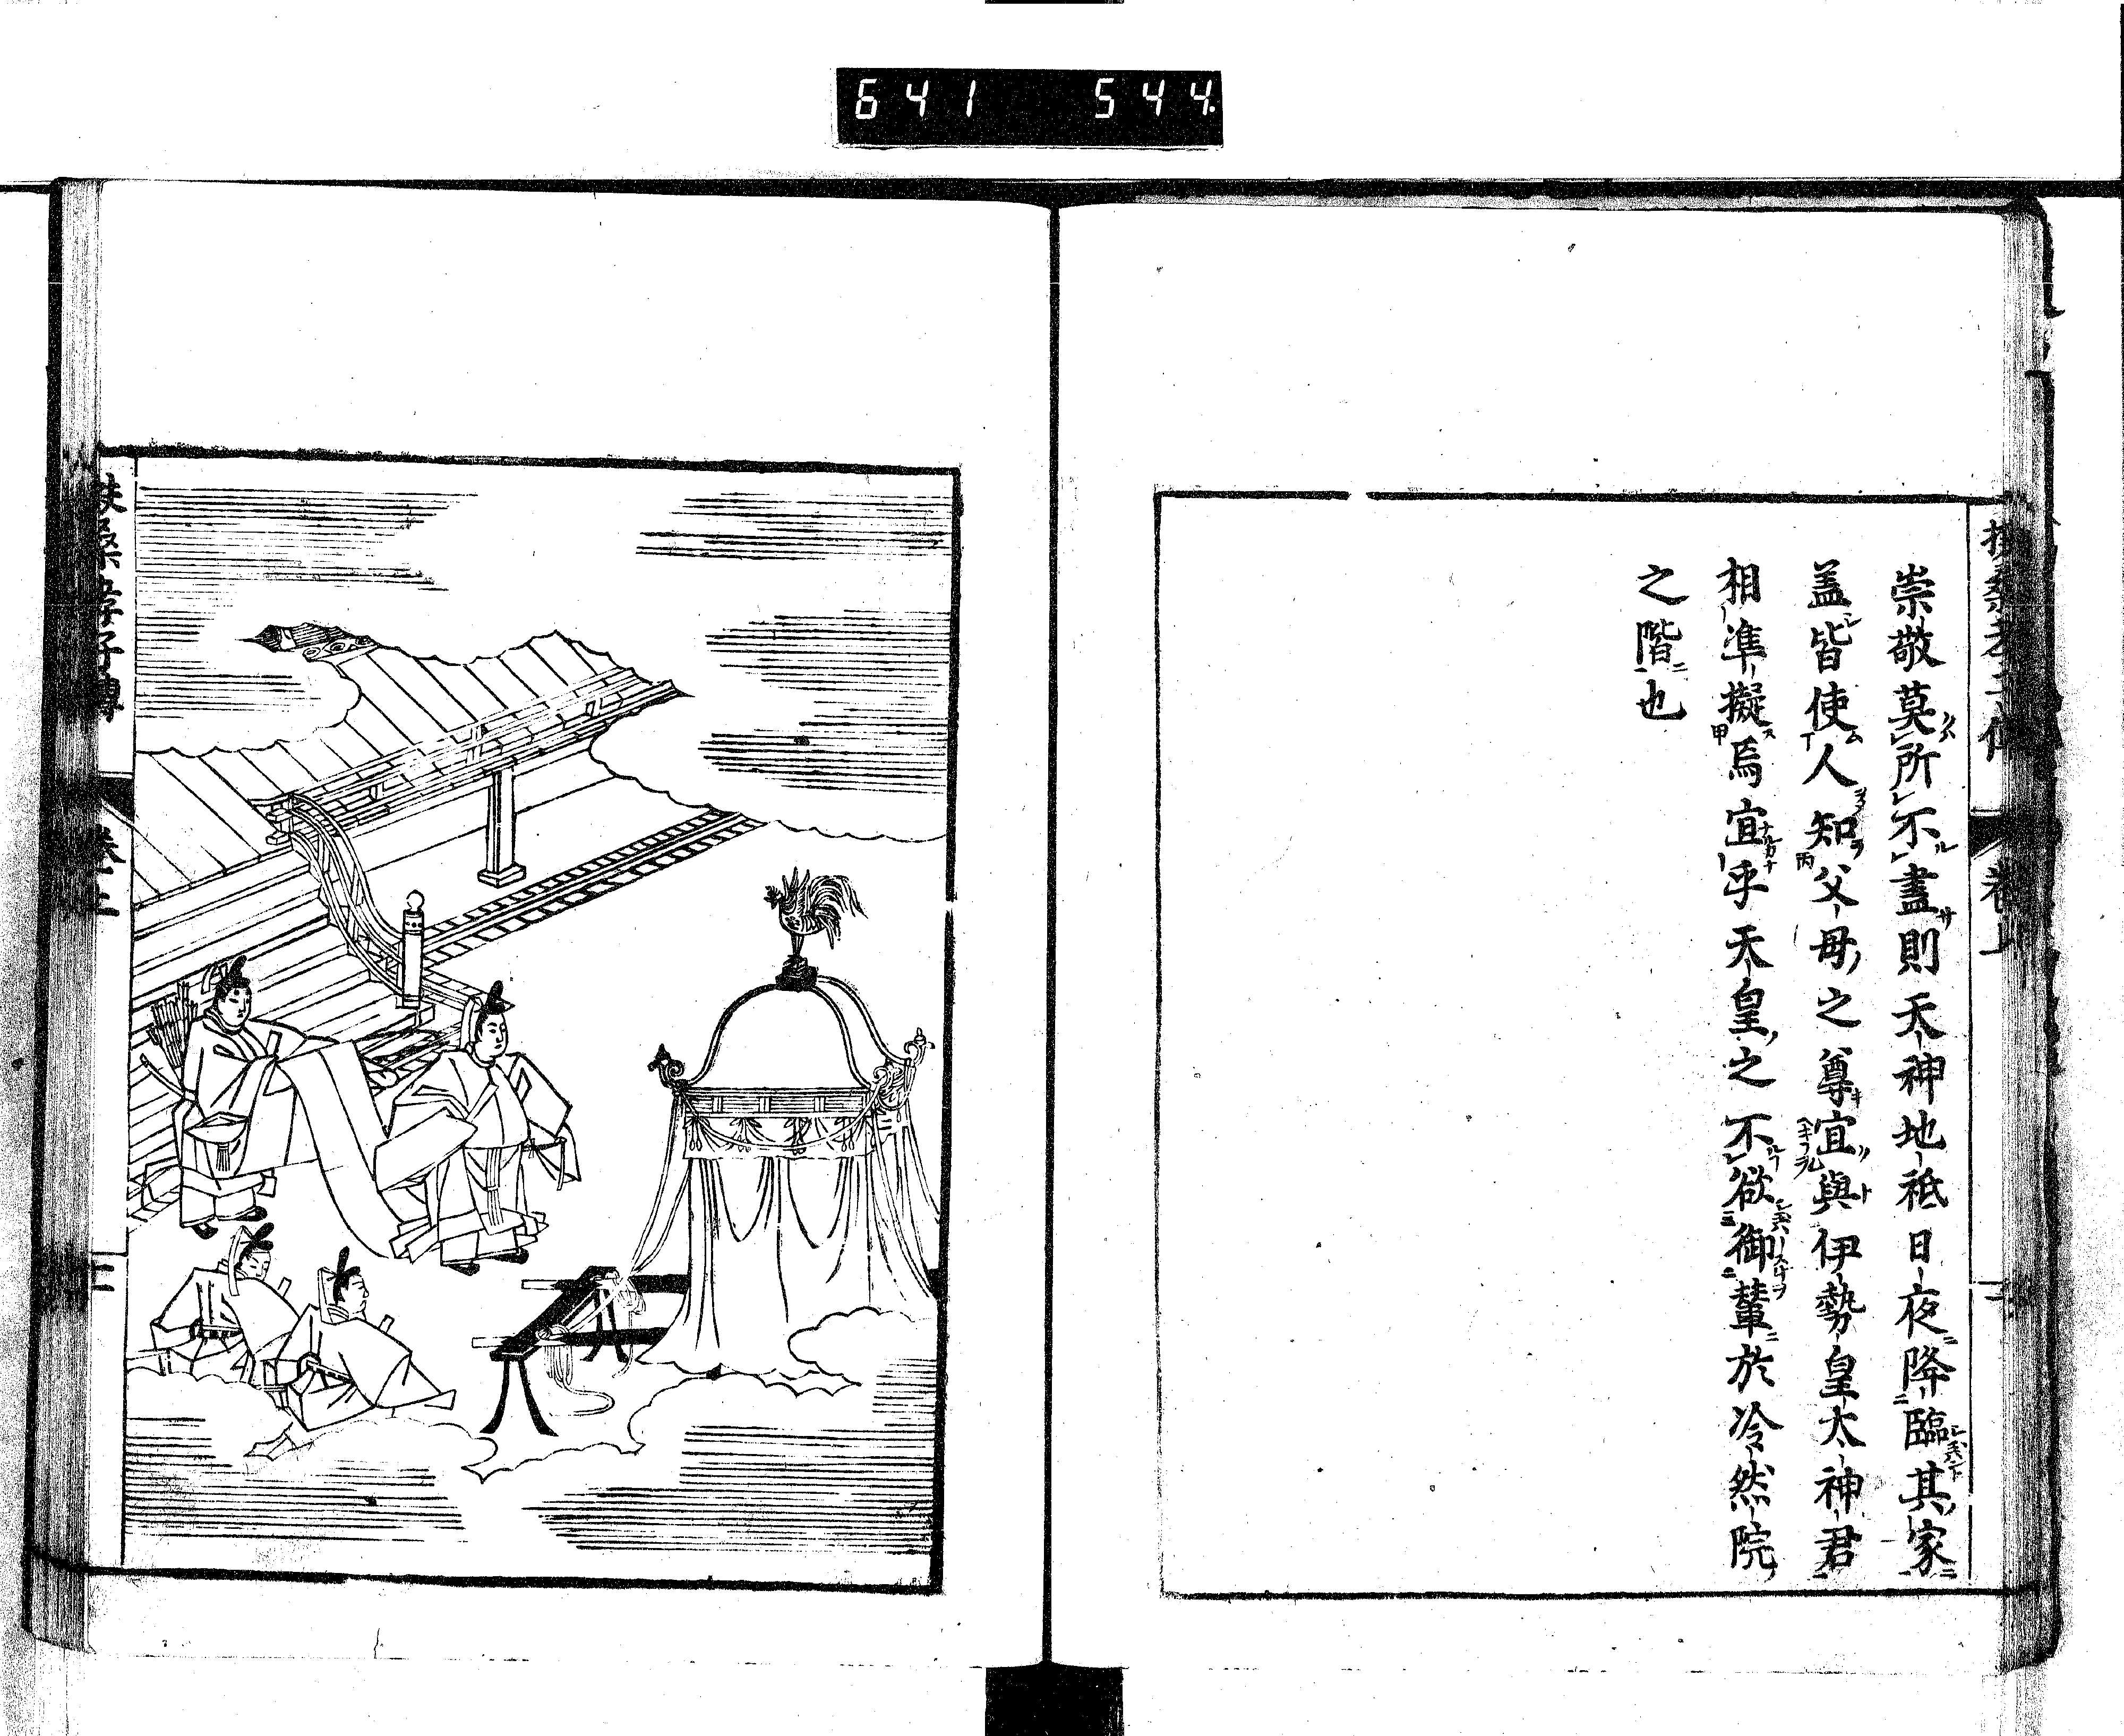 641 544
崇敬莫所不盡則天神地祇日夜降臨其家
盖皆使人知父母之尊宜與伊勢皇太神君
相準擬焉宜乎天皇之不欲御輦於冷然院
之階也
孝子傳
卷上